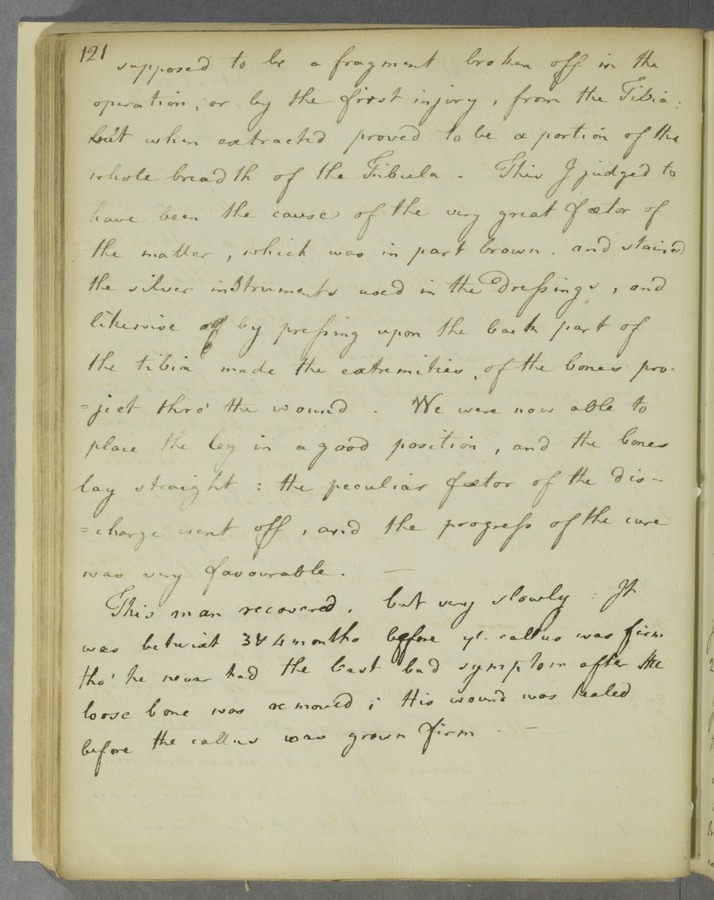 121
supposed to be a fragment broken off in the
operation, or by the first injury, from the Tibia;
but when extracted proved to be a portion of the
whole breadth of the Fibula. This I judged to
have been the cause of the very great fœtor of
the matter, which was in part brown, and stained
the silver instruments used in the dressings, and
likewise by pressing upon the back part of
the tibia made the extremities of the bones pro-
=ject thro' the wound. We were now able to
place the leg in a good position, and the bones
lay straight: the peculiar fœtor of the dis-
=charge went off, and the progress of the cure
was very favourable. —
This man recovered, but very slowly. It
was betwixt 3 & 4 months before ye. callus was firm
tho' he never had the least bad symptom after the
loose bone was removed; His wound was healed
before the callus was grown firm. —